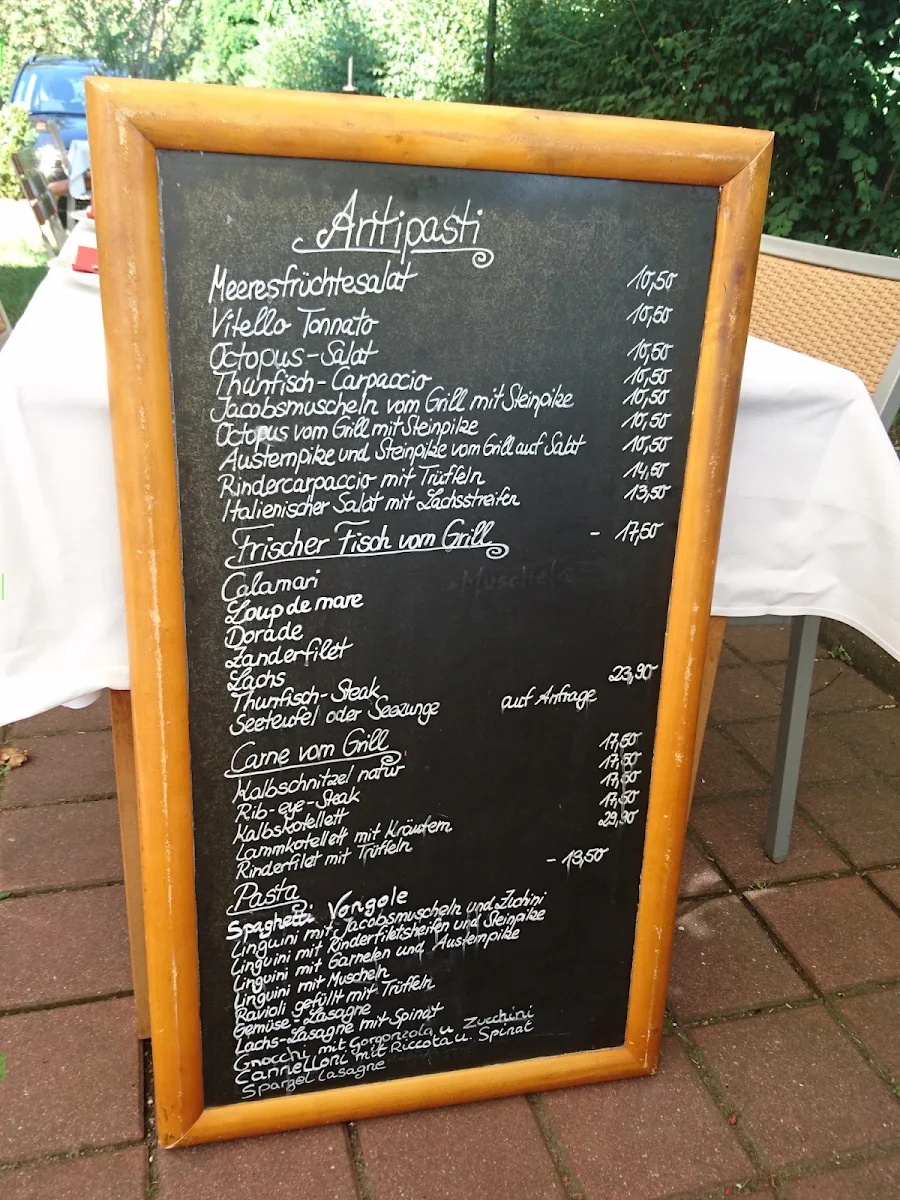 Antipasti
Meeresfrüchtesalat 10,50
Vitello Tonnato 10,50
Octopus-Salat 10,50
Thunfisch-Carpaccio 10,50
Jacobsmuscheln vom Grill mit Steinpilze 10,50
Octopus vom Grill mit Steinpilze 10,50
Austernpilze und Steinpilze vom Grill auf Salat 10,50
Rindercarpaccio mit Trüffeln 14,50
Italienischer Salat mit Lachsstreifen 13,50
Frischer Fisch vom Grill - 17,50
Muscheln
Calamari
Loup de mare
Dorade
Zanderfilet
Lachs
Thunfisch-Steak 23,90
Seeteufel oder Seezunge auf Anfrage
Carne vom Grill
Kalbschnitzel natur 17,50
Rib-eye-Steak 17,50
Kalbskotellett 17,50
Lammkotellett mit Kräutern 17,50
Rinderfilet mit Trüffeln 29,90
Pasta - 13,50
Spaghetti Vongole
Linguini mit Jacobsmuscheln und Zuchini
Linguini mit Rinderfiletsheifen und Steinpilze
Linguini mit Garnelen und Austernpilze
Linguini mit Muscheln
Ravioli gefüllt mit Trüffeln
Gemüse-Lasagne
Lachs-Lasagne mit Spinat
Gnocchi mit Gorgonzola u Zucchini
Cannelloni mit Riccota u. Spinat
Spargel Lasagne